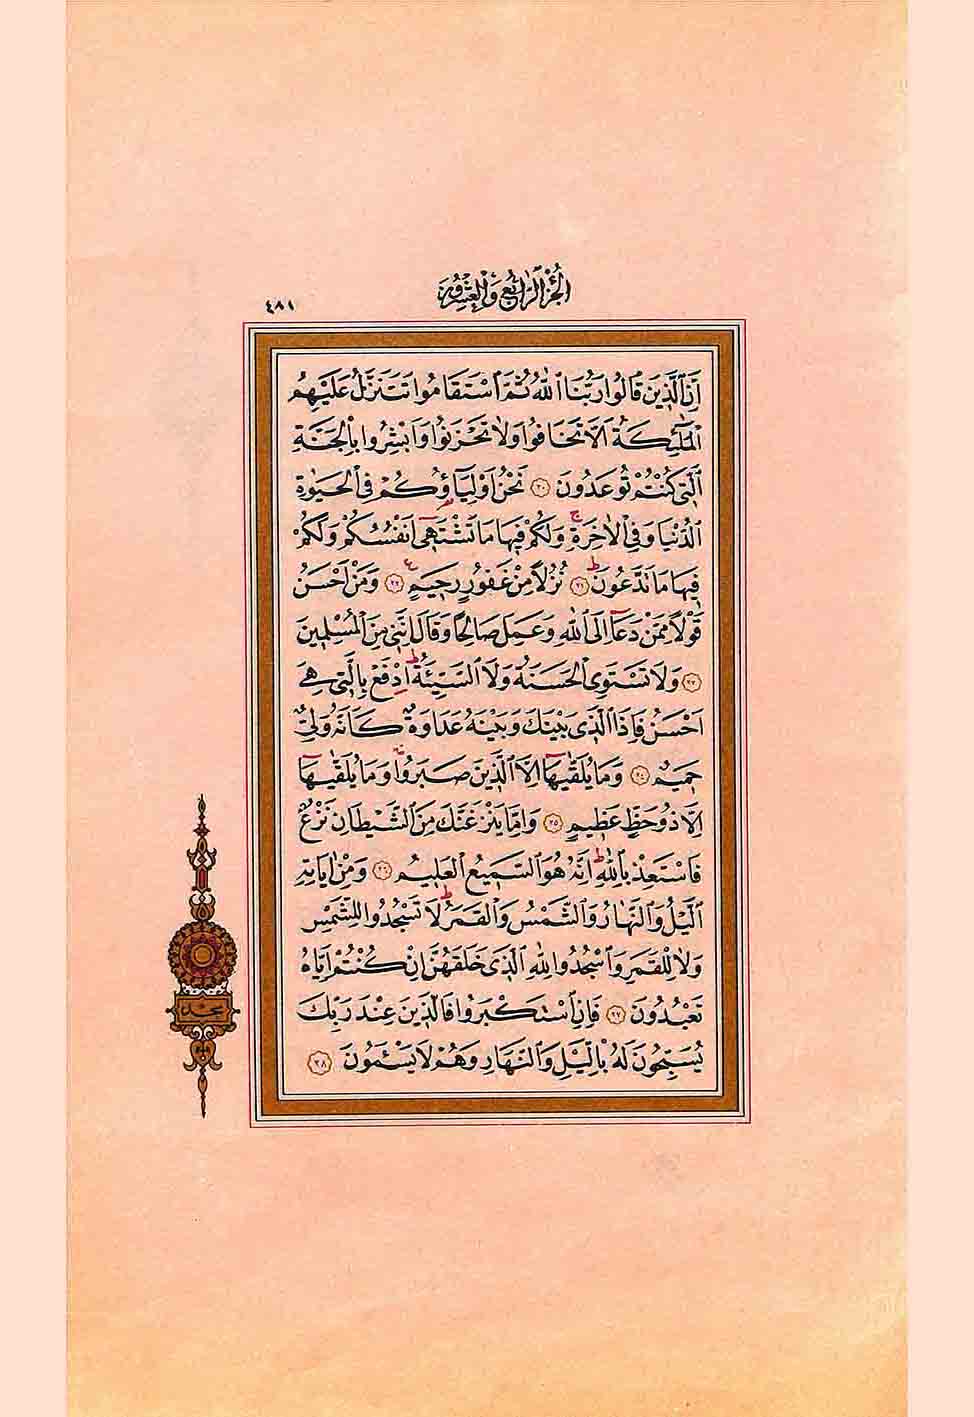 الجزء الرابع والعشرون
٤٨١
اِنَّ الَّذ۪ينَ قَالُوا رَبُّنَا اللّٰهُ ثُمَّ اسْتَقَامُوا تَتَنَزَّلُ عَلَيْهِمُ
الْمَلٰٓئِكَةُ اَلَّا تَخَافُوا وَلَا تَحْزَنُوا وَاَبْشِرُوا بِالْجَنَّةِ
الَّت۪ي كُنْتُمْ تُوعَدُونَ ٣٠ نَحْنُ اَوْلِيَٓاؤُ۬كُمْ فِي الْحَيٰوةِ
الدُّنْيَا وَفِي الْاٰخِرَةِۚ وَلَكُمْ ف۪يهَا مَا تَشْتَه۪ٓي اَنْفُسُكُمْ وَلَكُمْ
ف۪يهَا مَا تَدَّعُونَۜ ٣١ نُزُلاً مِنْ غَفُورٍ رَح۪يمٍ۟ ٣٢ وَمَنْ اَحْسَنُ
قَوْلاً مِمَّنْ دَعَٓا اِلَى اللّٰهِ وَعَمِلَ صَالِحاً وَقَالَ اِنَّن۪ي مِنَ الْمُسْلِم۪ينَ
٣٣ وَلَا تَسْتَوِي الْحَسَنَةُ وَلَا السَّيِّئَةُۜ اِدْفَعْ بِالَّت۪ي هِيَ
اَحْسَنُ فَاِذَا الَّذ۪ي بَيْنَكَ وَبَيْنَهُ عَدَاوَةٌ كَاَنَّهُ وَلِيٌّ
حَم۪يمٌ ٣٤ وَمَا يُلَقّٰيهَٓا اِلَّا الَّذ۪ينَ صَبَرُواۚ وَمَا يُلَقّٰيهَٓا
اِلَّا ذُو حَظٍّ عَظ۪يمٍ ٣٥ وَاِمَّا يَنْزَغَنَّكَ مِنَ الشَّيْطَانِ نَزْغٌ
فَاسْتَعِذْ بِاللّٰهِۜ اِنَّهُ هُوَ السَّم۪يعُ الْعَل۪يمُ ٣٦ وَمِنْ اٰيَاتِهِ
الَّيْلُ وَالنَّهَارُ وَالشَّمْسُ وَالْقَمَرُۜ لَا تَسْجُدُوا لِلشَّمْسِ
وَلَا لِلْقَمَرِ وَاسْجُدُوا لِلّٰهِ الَّذ۪ي خَلَقَهُنَّ اِنْ كُنْتُمْ اِيَّاهُ
تَعْبُدُونَ ٣٧ فَاِنِ اسْتَكْبَرُوا فَالَّذ۪ينَ عِنْدَ رَبِّكَ
يُسَبِّحُونَ لَهُ بِالَّيْلِ وَالنَّهَارِ وَهُمْ لَا يَسْـَٔمُونَ ٣٨
سجده